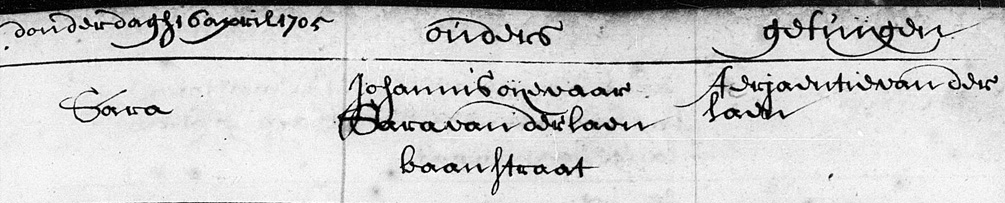 donderdagh 16 april 1705
ouders
getuijgen
Sara
Johannis oijevaar
Sara van der laen
baanstraat
Aerjaentie van der
laen